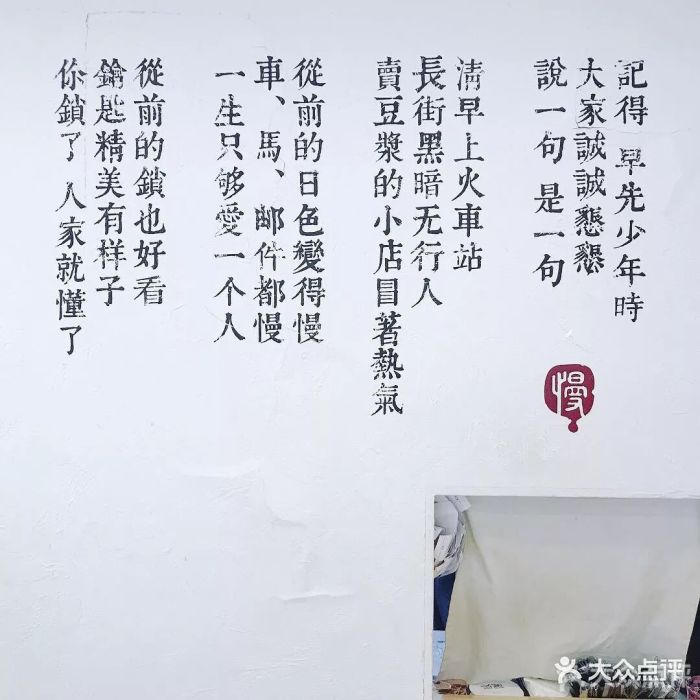 記得 早先少年時
大家誠誠懇懇
説一句 是一句
清早上火車站
長街黑暗无行人
賣豆漿的小店冒著熱氣
從前的日色變得慢
車、馬、邮件都慢
一生只够愛一个人
從前的鎖也好看
鑰匙精美有样子
你鎖了 人家就懂了
慢
大众点评